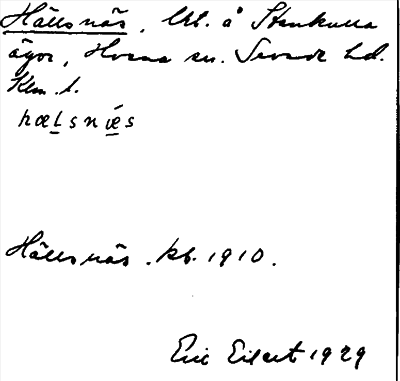 Hällsnäs, lht. å Stenkulla
ägor, Hvena sn. Sevede hd.
Klm. l.
hælsnæ̀s
Hällsnäs. kb. 1910.
Eric Eilert 1929